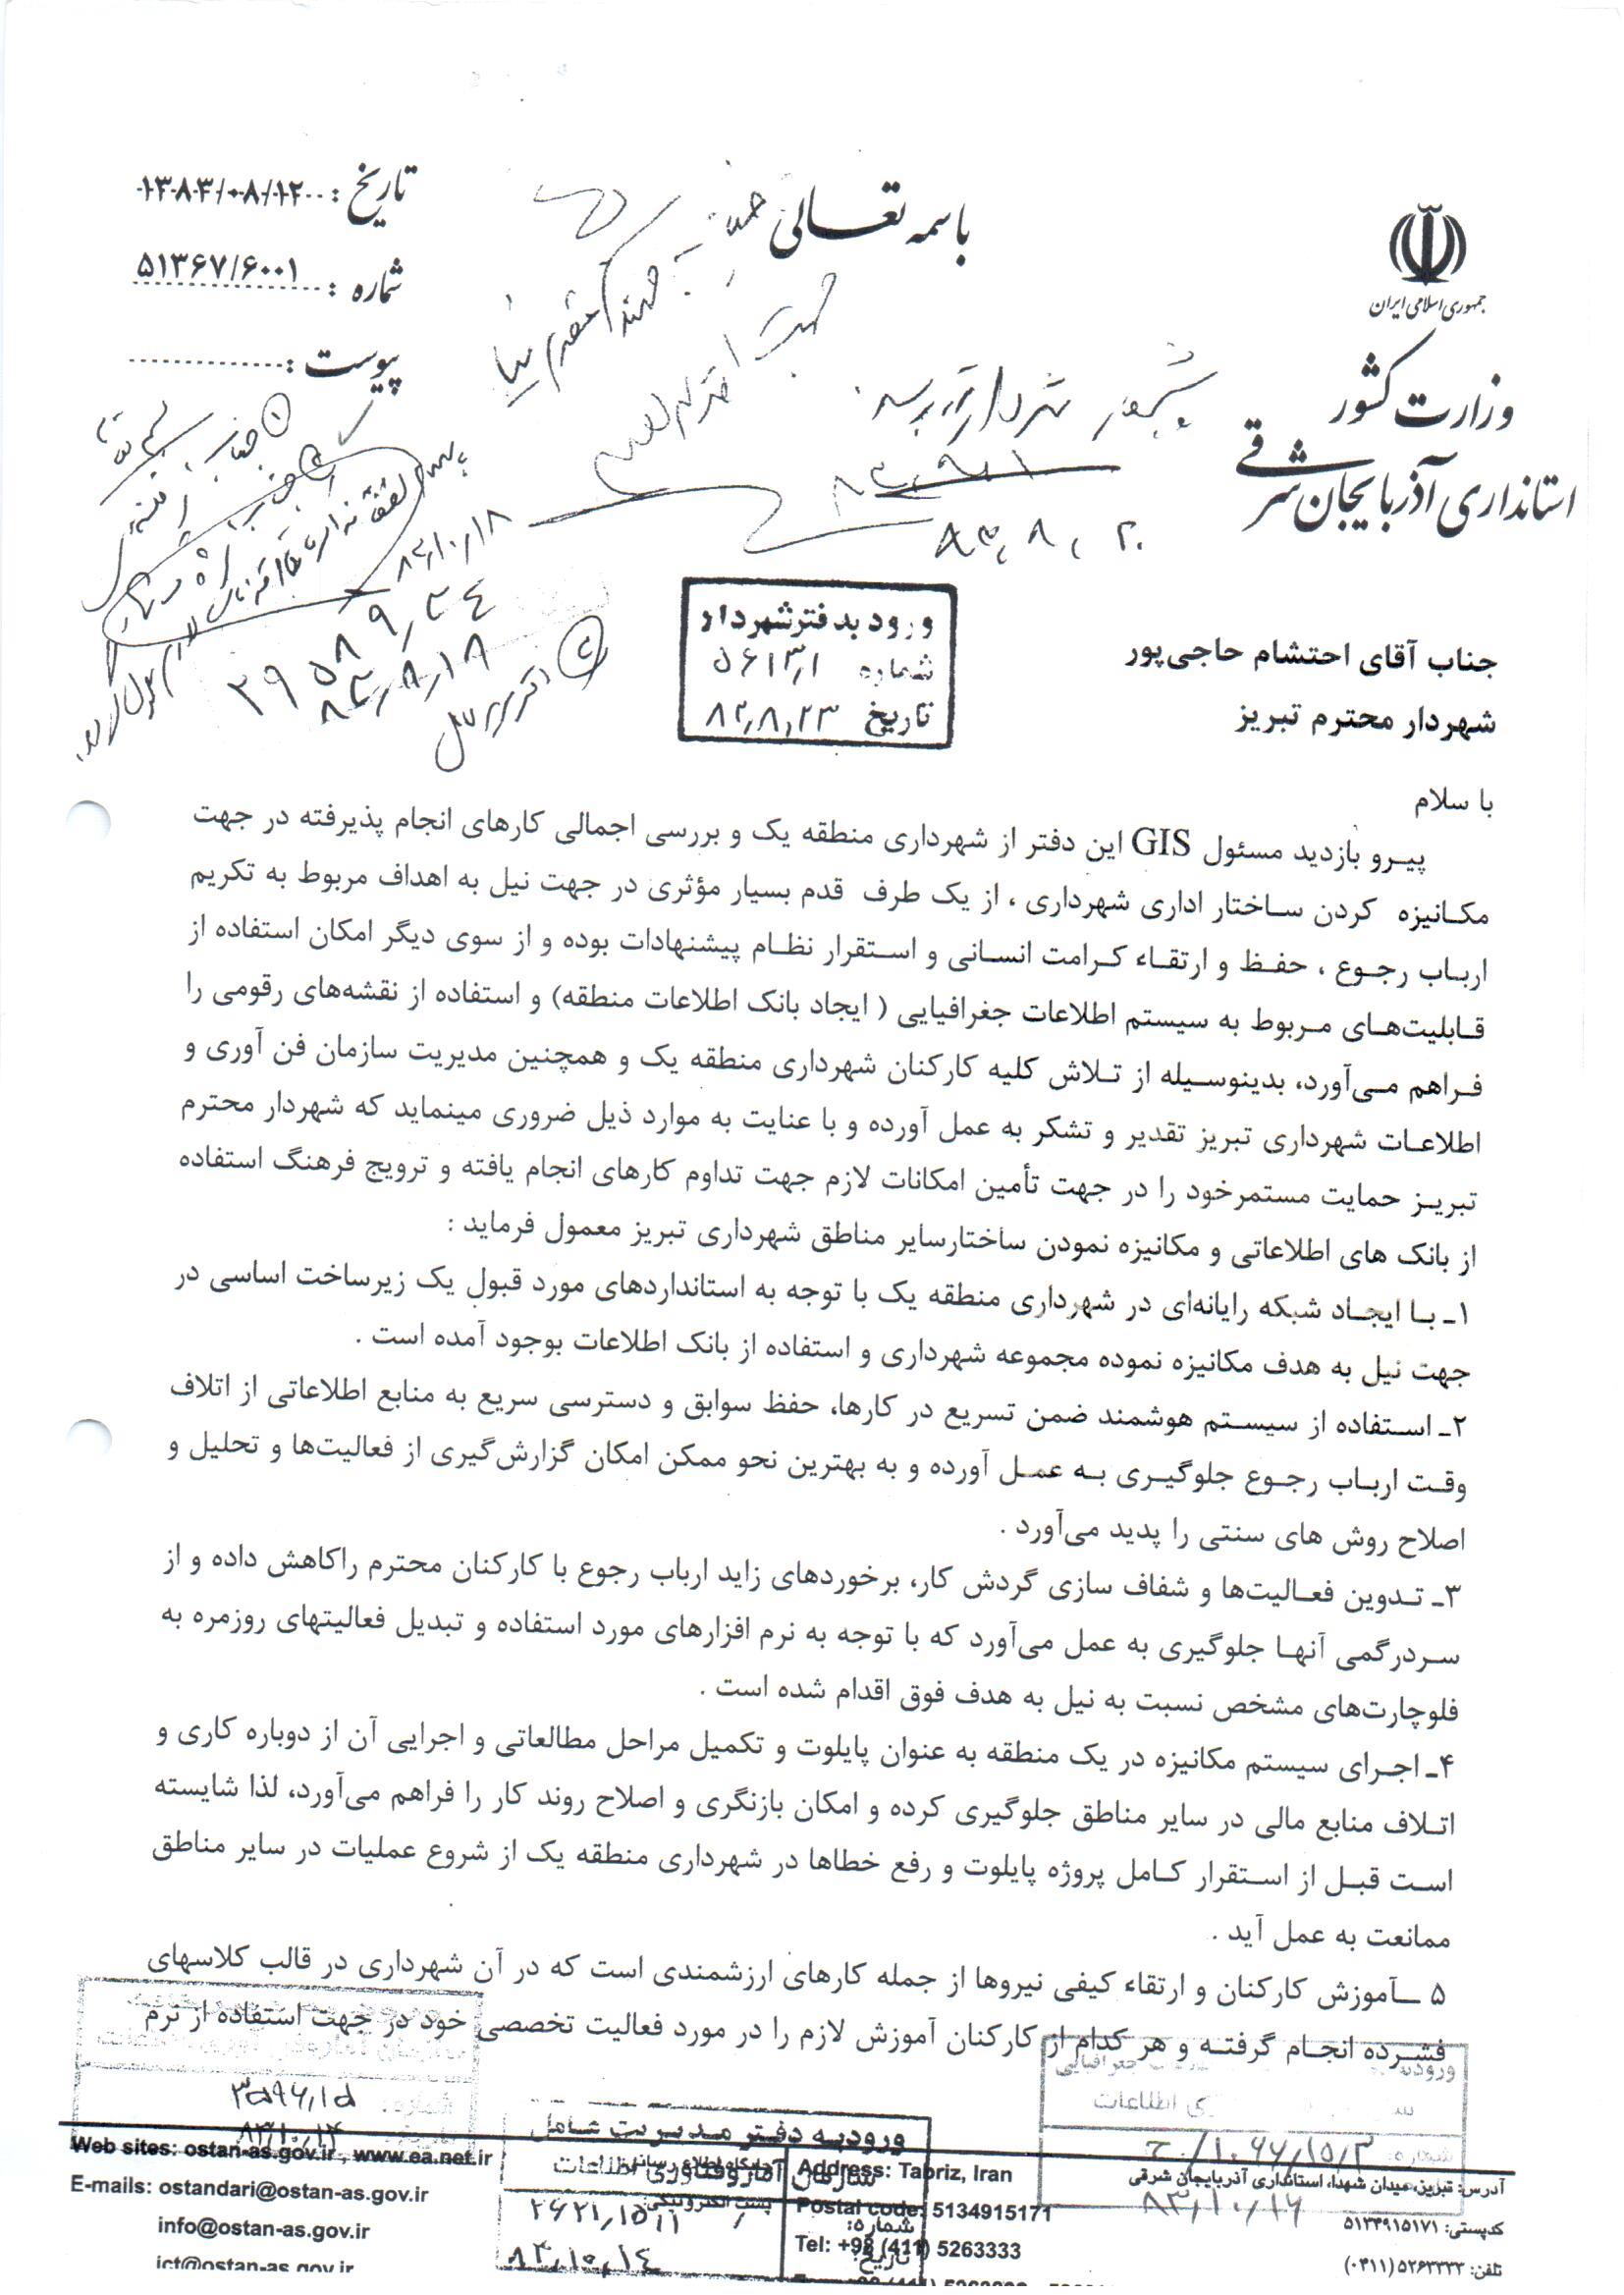 باسمه تعالی
جمهوری اسلامی ایران
وزارت کشور
استانداری آذربایجان شرقی
تاریخ : ۱۳۸۳/۰۸/۱۲
شماره : ۵۱۳۶۷/۶۰۰۱
پیوست :
جهت اقدام
۸۳،۸،۲۰
۸۳/۱۰/۱۸
۳۹۵۸۹،۳۴
۸۳،۸،۱۸
ورود بدفتر شهردار
شماره ۵۶۱۳۱
تاریخ ۸۳،۸،۲۳
جناب آقای احتشام حاجی‌پور
شهردار محترم تبریز
با سلام
پیرو بازدید مسئول GIS این دفتر از شهرداری منطقه یک و بررسی اجمالی کارهای انجام پذیرفته در جهت
مکانیزه کردن ساختار اداری شهرداری ، از یک طرف قدم بسیار مؤثری در جهت نیل به اهداف مربوط به تکریم
ارباب رجوع ، حفظ و ارتقاء کرامت انسانی و استقرار نظام پیشنهادات بوده و از سوی دیگر امکان استفاده از
قابلیت‌های مربوط به سیستم اطلاعات جغرافیایی ( ایجاد بانک اطلاعات منطقه) و استفاده از نقشه‌های رقومی را
فراهم می‌آورد، بدینوسیله از تلاش کلیه کارکنان شهرداری منطقه یک و همچنین مدیریت سازمان فن آوری و
اطلاعات شهرداری تبریز تقدیر و تشکر به عمل آورده و با عنایت به موارد ذیل ضروری مینماید که شهردار محترم
تبریز حمایت مستمرخود را در جهت تأمین امکانات لازم جهت تداوم کارهای انجام یافته و ترویج فرهنگ استفاده
از بانک های اطلاعاتی و مکانیزه نمودن ساختارسایر مناطق شهرداری تبریز معمول فرماید :
۱ـ با ایجاد شبکه رایانه‌ای در شهرداری منطقه یک با توجه به استانداردهای مورد قبول یک زیرساخت اساسی در
جهت نیل به هدف مکانیزه نموده مجموعه شهرداری و استفاده از بانک اطلاعات بوجود آمده است .
۲ـ استفاده از سیستم هوشمند ضمن تسریع در کارها، حفظ سوابق و دسترسی سریع به منابع اطلاعاتی از اتلاف
وقت ارباب رجوع جلوگیری به عمل آورده و به بهترین نحو ممکن امکان گزارش‌گیری از فعالیت‌ها و تحلیل و
اصلاح روش های سنتی را پدید می‌آورد .
۳ـ تدوین فعالیت‌ها و شفاف سازی گردش کار، برخوردهای زاید ارباب رجوع با کارکنان محترم راکاهش داده و از
سردرگمی آنها جلوگیری به عمل می‌آورد که با توجه به نرم افزارهای مورد استفاده و تبدیل فعالیتهای روزمره به
فلوچارت‌های مشخص نسبت به نیل به هدف فوق اقدام شده است .
۴ـ اجرای سیستم مکانیزه در یک منطقه به عنوان پایلوت و تکمیل مراحل مطالعاتی و اجرایی آن از دوباره کاری و
اتلاف منابع مالی در سایر مناطق جلوگیری کرده و امکان بازنگری و اصلاح روند کار را فراهم می‌آورد، لذا شایسته
است قبل از استقرار کامل پروژه پایلوت و رفع خطاها در شهرداری منطقه یک از شروع عملیات در سایر مناطق
ممانعت به عمل آید .
۵ ـ آموزش کارکنان و ارتقاء کیفی نیروها از جمله کارهای ارزشمندی است که در آن شهرداری در قالب کلاسهای
فشرده انجام گرفته و هر کدام از کارکنان آموزش لازم را در مورد فعالیت تخصصی خود در جهت استفاده از نرم
۳۵۹۶،۱۵
۸۳،۱۰،۱۴
ورود به دفتر مدیریت عامل
سازمان آمار و فناوری اطلاعات
شماره: ۲۶۲۱،۱۵،۱۱
تاریخ: ۸۳،۱۰،۱۴
۸۳،۱۰،۱۶
Web sites: ostan-as.gov.ir , www.ea.net.ir
E-mails: ostandari@ostan-as.gov.ir
info@ostan-as.gov.ir
ict@ostan-as.gov.ir
پایگاه اطلاع رسانی:
پست الکترونیکی:
Address: Tabriz, Iran
Postal code: 5134915171
Tel: +98 (411) 5263333
آدرس: تبریز، میدان شهدا، استانداری آذربایجان شرقی
کدپستی: ۵۱۳۴۹۱۵۱۷۱
تلفن: ۵۲۶۳۳۳۳ (۰۴۱۱)